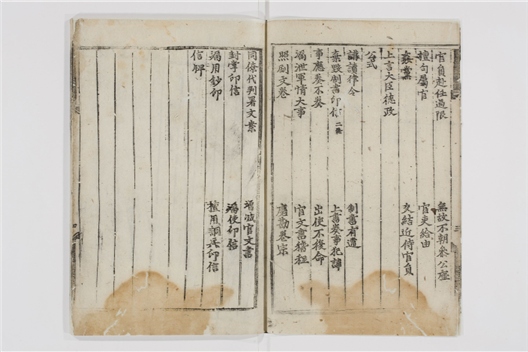 官員赴任過限 無故不朝參公座
擅勾屬官 官吏給由
姦黨 交結近侍官員
上言大臣德政
公式
講讀律令 制書有違
棄毀制書印信 二條 上書奏事犯諱
事應奏不奏 出使不復命
漏泄軍情大事 官文書稽程
照刷文卷 磨勘卷宗
同僚代判署文案 增減官文書
封掌印信 漏使印信
漏用鈔印 擅用調兵印信
信牌